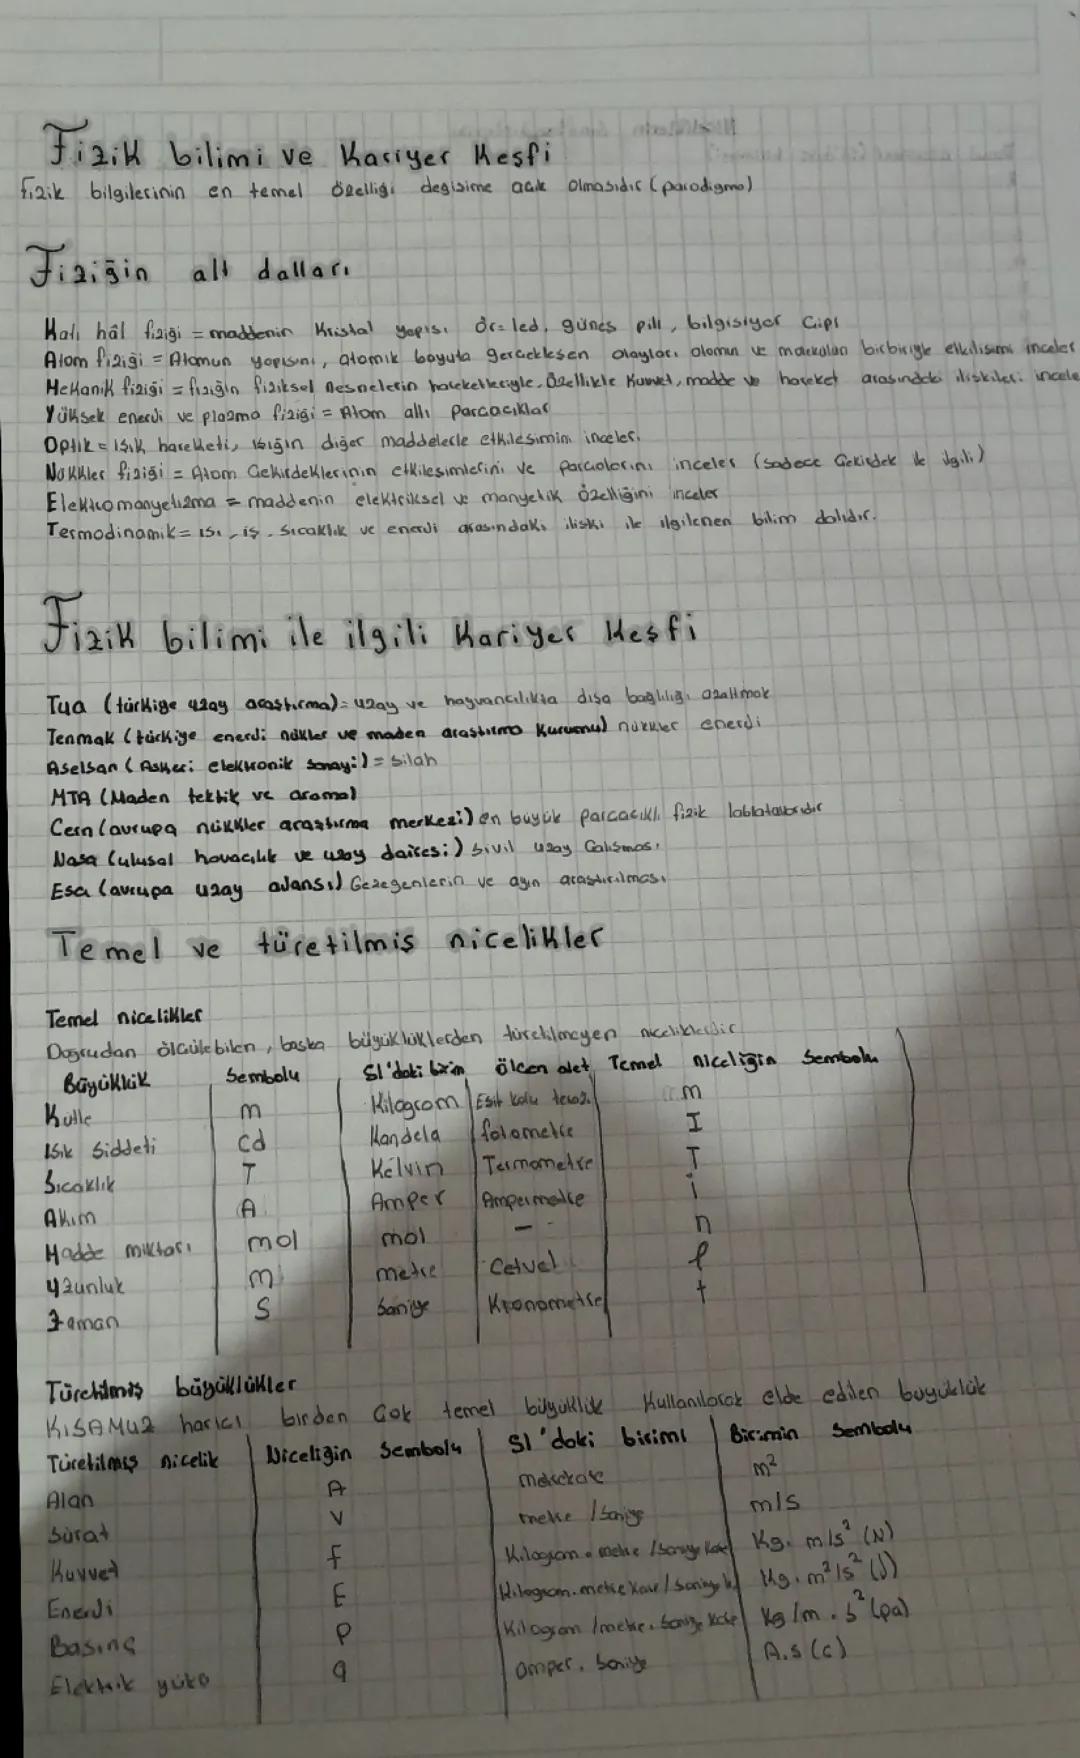 Fizik bilimi ve Kariyer Keşfi
fizik bilgilerinin en temel özelliği degisime acık olmasıdır (paradigma)
Fiziğin alt dalları
Katı hâl fiziği = maddenin Kristal yapısı ör= led, güneş pili, bilgisiyar Cipi
Atom fiziği = Atomun yapısını, atomik boyuta gerçekleşen olayları atomun ve molekülün birbiriyle etkilisimi inceler
Mekanik fiziği = fiziğin fiziksel nesnelerin hareketleriyle. Özellikle Kuvvet, madde ve hareket arasındaki iliskileri incele
Yüksek enerji ve plazma fiziği = Atom altı Parçacıklar
Optik = ışık hareketi, ışığın diğer maddelerle etkilesimini inceler.
Nükkler fiziği = Atom Çekirdeklerinin etkilesimlerini ve parçalarını inceler (sadece Çekirdek ile ilgili)
Elektromanyetizma = maddenin elektriksel ve manyetik özelliğini inceler
Termodinamik = ısı, iş, sıcaklık ve enerji arasındaki iliski ile ilgilenen bilim dalıdır.
Fizik bilimi ile ilgili Kariyer Keşfi
Tua (türkiye uzay arastırma) = uzay ve hayvancılıkta dışa bağlılığı azaltmak
Tenmak (türkiye enerji nükler ve maden arastırma Kurumu) nükkler enerji
Aselsan (Askeri elektronik sanayi) = Silah
MTA (Maden tektik ve arama)
Cern (avrupa nükkler arastırma merkezi) en büyük parcacıklı fizik lablatavarıdır
Nasa (ulusal havacılık ve uzay dairesi) sivil uzay Çalısması
Esa (avrupa uzay ajansı) Gezegenlerin ve ayın arastırılması
Temel ve türetilmiş nicelikler
Temel nicelikler
Dogrudan ölcülebilen, baska büyüklüklerden türetilmeyen niceliklerdir
Büyüklük Sembolu SI'daki birim ölcen alet Temel niceliğin Sembolu
Kütle m Kilogram Esit kollu terazi m
Işık Siddeti cd Kandela fotometre I
Sıcaklık T Kelvin Termometre T
Akım A Amper Ampermetre i
Madde miktarı mol mol - n
Uzunluk m metre Cetvel l
Zaman S Saniye Kronometre t
Türetilmiş büyüklükler
KISAMUZ harici birden Çok temel büyüklük Kullanılarak elde edilen buyuklük
Türetilmiş nicelik Niceliğin Sembolu SI'daki birimi Birimin Sembolu
Alan A metrekare m²
Sürat V metre /Saniye m/s
Kuvvet f Kilogram.metre /Saniye kare Kg.m/s² (N)
Enerji E Kilogram.metre kare / Saniye k Kg.m²/s² (J)
Basınç P Kilogram /metre.Saniye kare Kg/m.s² (pa)
Elektrik yükü q amper.Saniye A.s (c)